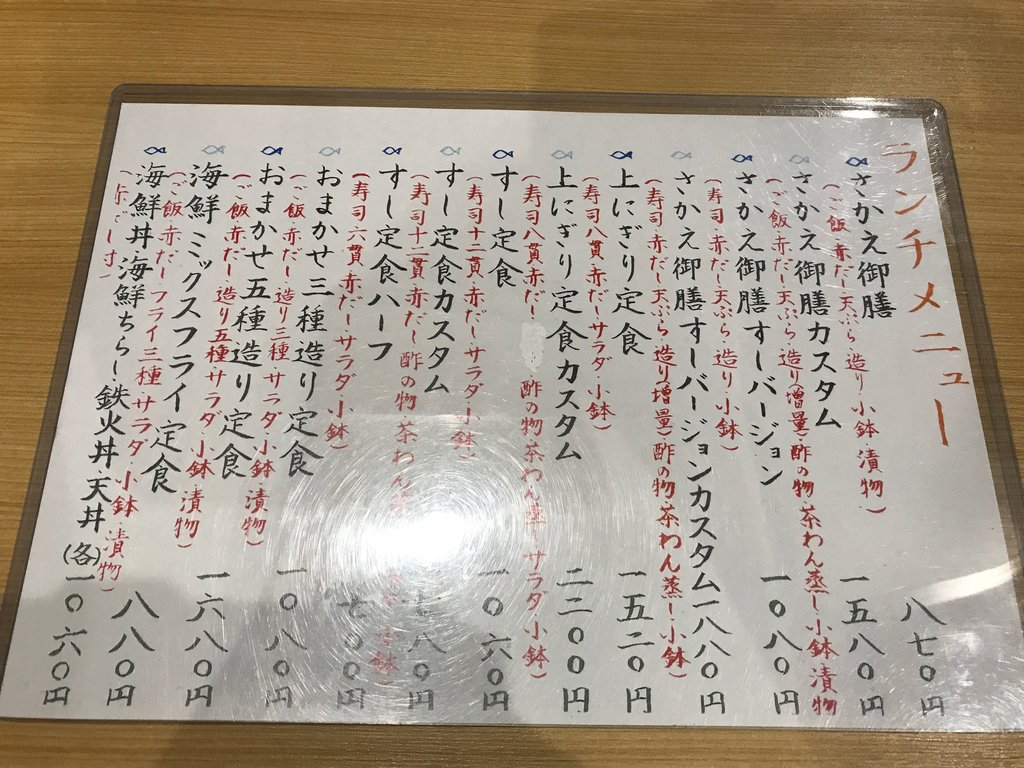 ランチメニュー
さかえ御膳 八七〇円
(ご飯・赤だし・天ぷら・造り・小鉢・漬物)
さかえ御膳カスタム 一五八〇円
(ご飯・赤だし・天ぷら・造り(増量)・酢の物・茶わん蒸し・小鉢・漬物)
さかえ御膳すしバージョン 一〇八〇円
(寿司・赤だし・天ぷら・造り・小鉢)
さかえ御膳すしバージョンカスタム 一八八〇円
(寿司・赤だし・天ぷら・造り(増量)・酢の物・茶わん蒸し・小鉢)
上にぎり定食 一五二〇円
(寿司八貫・赤だし・サラダ・小鉢)
上にぎり定食カスタム 二二〇〇円
(寿司八貫・赤だし・酢の物・茶わん蒸し・サラダ・小鉢)
すし定食 一〇六〇円
(寿司十二貫・赤だし・サラダ・小鉢)
すし定食カスタム 八〇円
(寿司十二貫・赤だし・酢の物・茶わん蒸し 小鉢)
すし定食ハーフ 七〇〇円
(寿司六貫・赤だし・サラダ・小鉢)
おまかせ三種造り定食 一〇八〇円
(ご飯・赤だし・造り三種・サラダ・小鉢・漬物)
おまかせ五種造り定食 一六八〇円
(ご飯・赤だし・造り五種・サラダ・小鉢・漬物)
海鮮ミックスフライ定食 八八〇円
(ご飯・赤だし・フライ三種・サラダ・小鉢・漬物)
海鮮丼 海鮮ちらし 鉄火丼 天丼(各) 一〇六〇円
(赤だし付